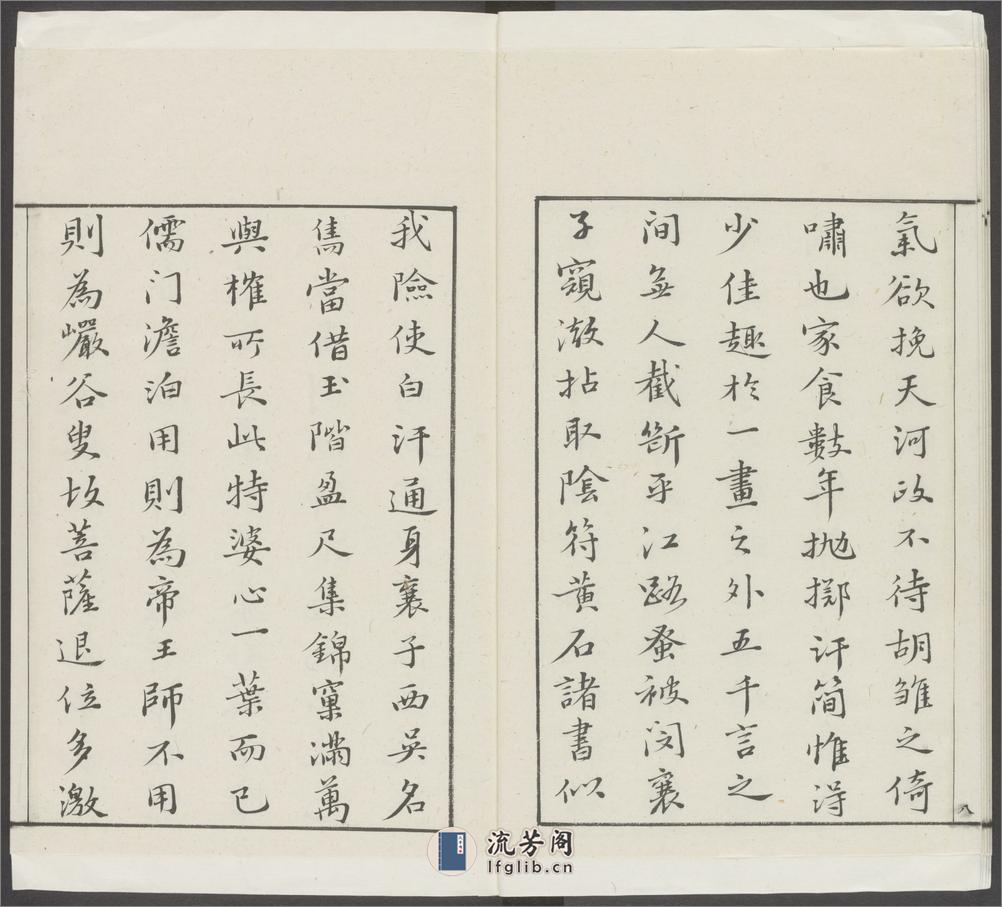 氣欲挽天河政不待胡雏之倚
嘯也家食數年抛擲汗简惟得
少佳趣於一畫之外五千言之
间無人截斷平江路蚤被閔襄
子窺潋拈取陰符黄石諸書似
八
我險使白汗通身襄子西吴名
雋當借玉階盈尺集錦窠滿萬
與榷所長此特婆心一葉而已
儒门澹泊用則為帝王師不用
則為巖谷叟故菩薩退位多激
流芳阁
lfglib.cn